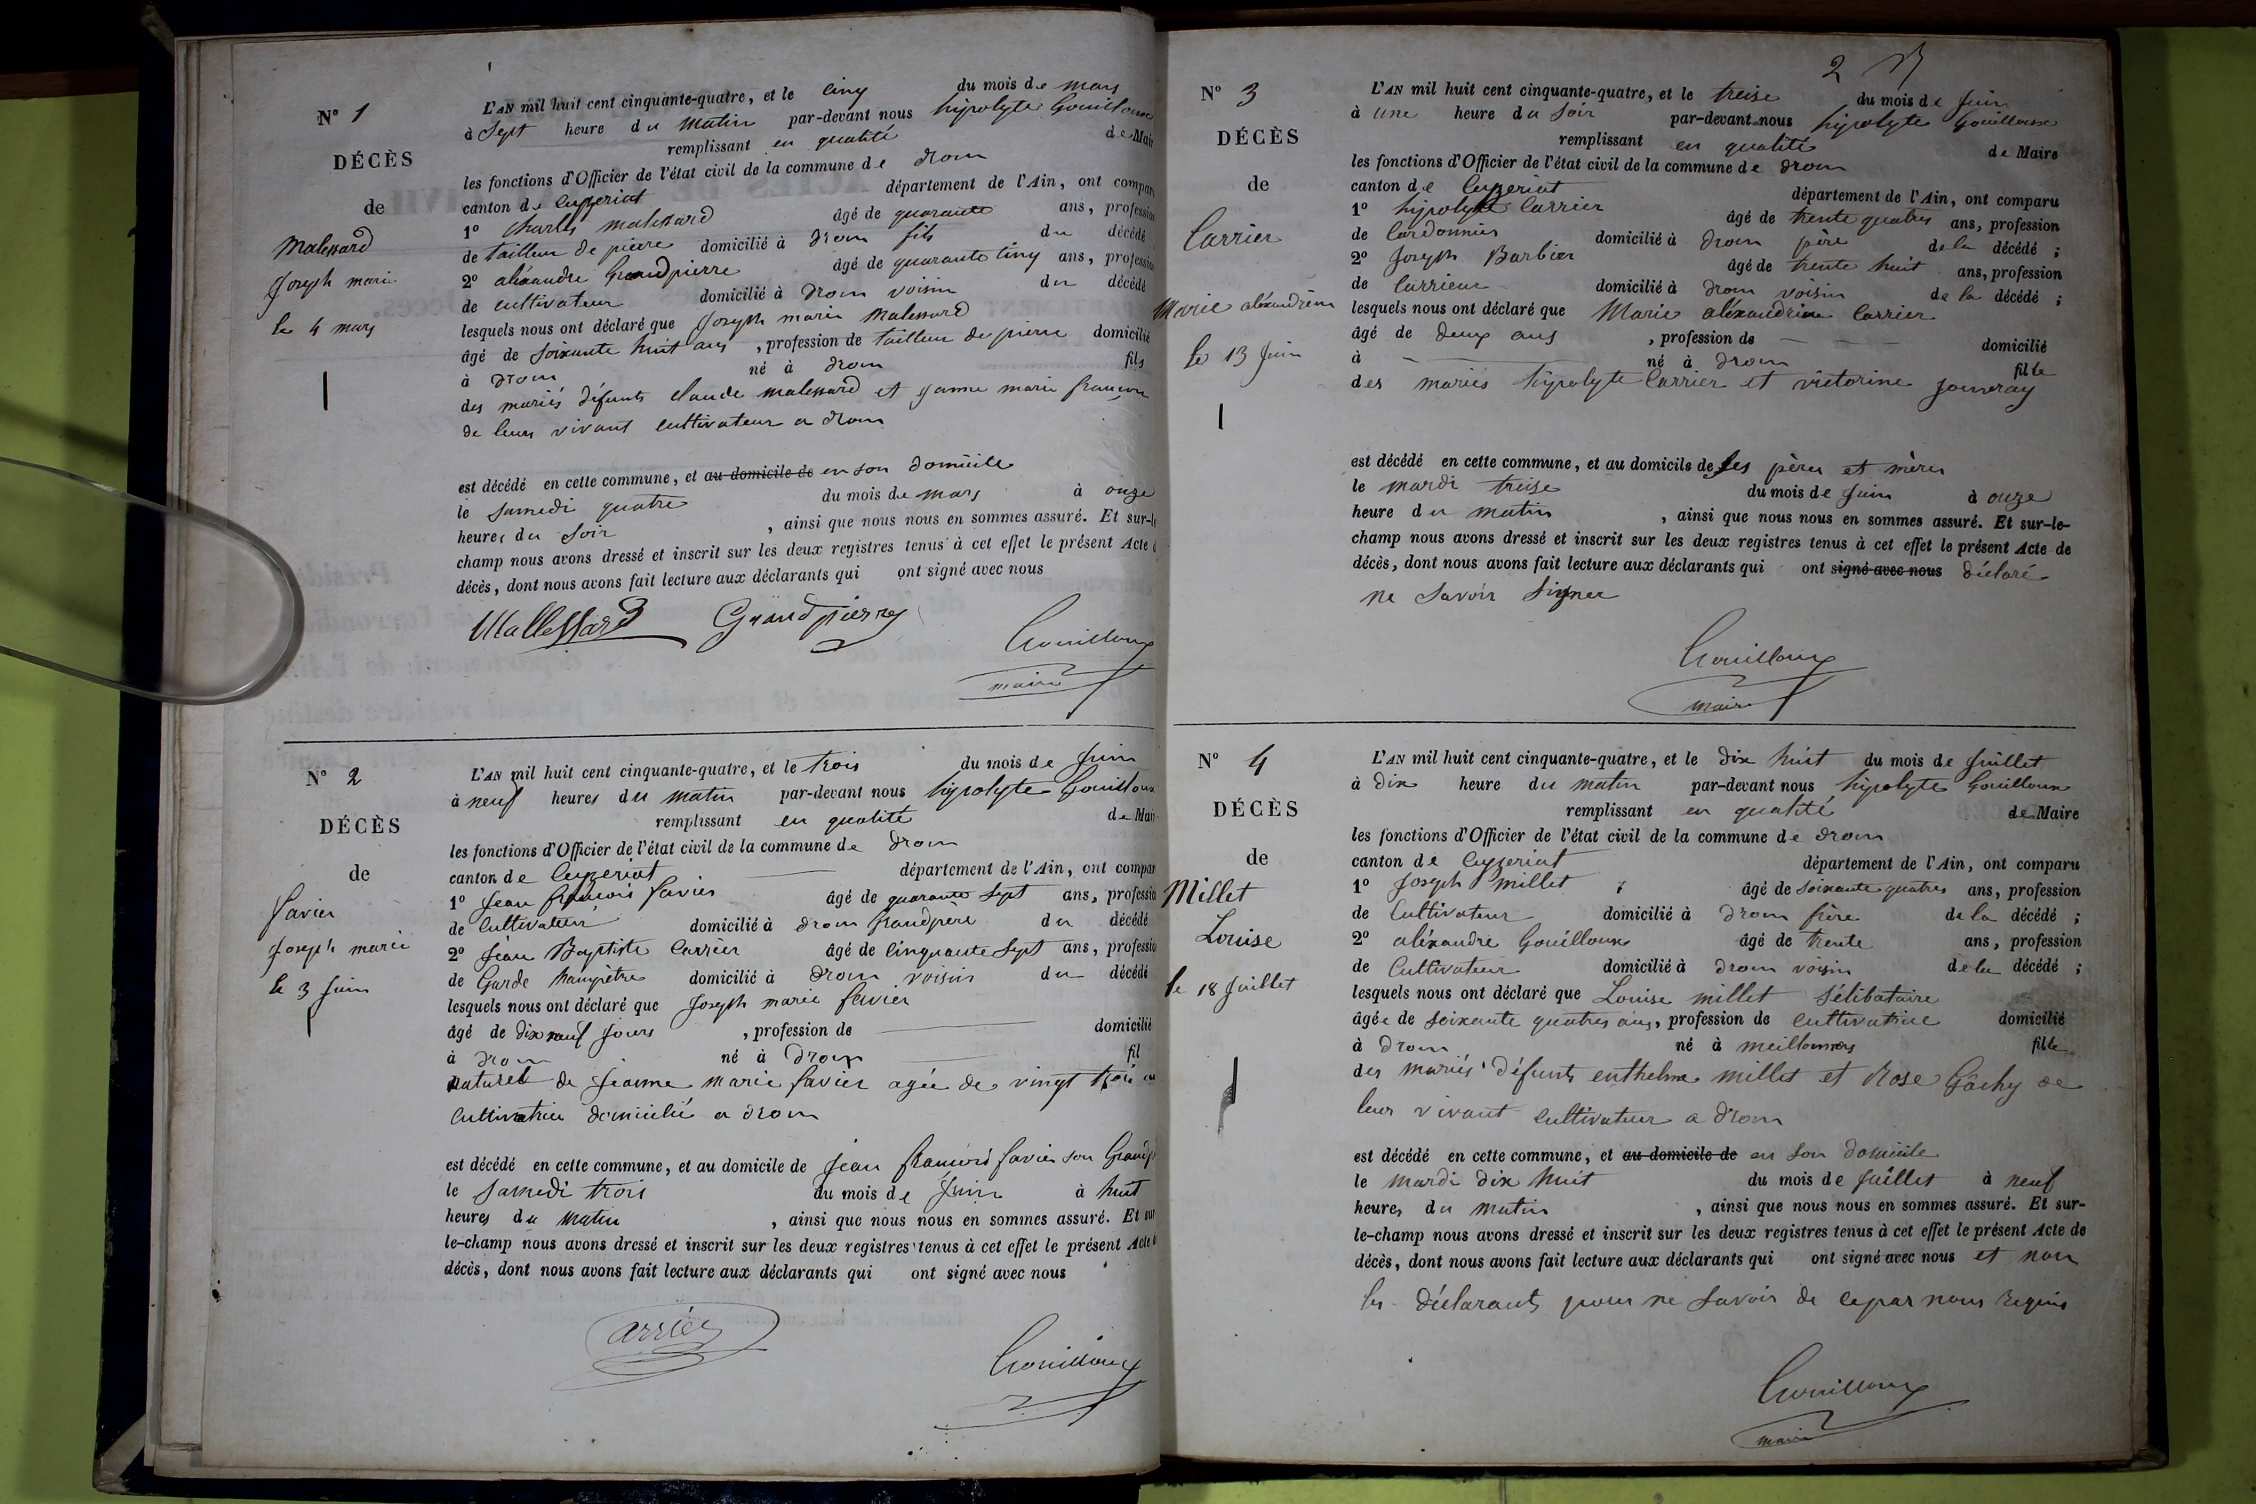 N° 1
DÉCÈS
de
Malessard
Joseph marie
le 4 mars
L'AN mil huit cent cinquante-quatre, et le cinq du mois de mars
à sept heure du matin par-devant nous hipolyte Gouilloux
remplissant en qualité de Maire
les fonctions d'Officier de l'état civil de la commune de drom
canton de Ceyzeriat département de l'Ain, ont compar
1° Charles malessard âgé de quarante ans, profession
de tailleur de pierre domicilié à drom fils du décédé
2° aléxandre Grandpierre âgé de quarante cinq ans, profession
de cultivateur domicilié à drom voisin du décédé
lesquels nous ont déclaré que Joseph marie Malessard
âgé de soixante huit ans, profession de tailleur de pierre domicilié
à drom né à drom fils
des mariés défunts claude malessard et janne marie françon
de leurs vivant cultivateur a drom
est décédé en cette commune, et au domicile de en son domicile
le samedi quatre du mois de mars à onze
heures du soir, ainsi que nous nous en sommes assuré. Et sur-le
champ nous avons dressé et inscrit sur les deux registres tenus à cet effet le présent Acte d
décès, dont nous avons fait lecture aux déclarants qui ont signé avec nous
Mallessard Grandpierre
Gouilloux
maire
N° 2
DÉCÈS
de
favier
Joseph marie
le 3 Juin
L'AN mil huit cent cinquante-quatre, et le trois du mois de Juin
à neuf heures du matin par-devant nous hipolyte Gouilloux
remplissant en qualité de Mair
les fonctions d'Officier de l'état civil de la commune de drom
canton de Ceyzeriat département de l'Ain, ont compar
1° Jean françois favier âgé de quarante sept ans, professio
de Cultivateur domicilié à drom Grandpere du décédé
2° Jean Baptiste Carrier âgé de cinquante sept ans, professio
de Garde hampètre domicilié à drom voisin du décédé
lesquels nous ont déclaré que Joseph marie favier
âgé de dix neuf jours, profession de domicilié
à drom né à drom fil
naturel de jeanne marie favier agée de vingt trois an
Cultivatrice domicilié a drom
est décédé en cette commune, et au domicile de jean françois favier son Grandp
le samedi trois du mois de Juin à huit
heures du matin, ainsi que nous nous en sommes assuré. Et sur
le-champ nous avons dressé et inscrit sur les deux registres tenus à cet effet le présent Acte d
décès, dont nous avons fait lecture aux déclarants qui ont signé avec nous
Carrier
Gouilloux
2
N° 3
DÉCÈS
de
Carrier
Marie aléxandrine
le 13 Juin
L'AN mil huit cent cinquante-quatre, et le treise du mois de Juin
à une heure du soir par-devant nous hipolyte Gouilloux
remplissant en qualité de Maire
les fonctions d'Officier de l'état civil de la commune de drom
canton de Ceyzeriat département de l'Ain, ont comparu
1° hipolyte Carrier âgé de trente quatres ans, profession
de Cordonnier domicilié à drom père de la décédé ;
2° Joseph Barbier âgé de trente huit ans, profession
de Carrieur domicilié à drom voisin de la décédé ;
lesquels nous ont déclaré que Marie aléxandrine Carrier
âgé de deux ans, profession de domicilié
à né à drom fille
des mariés hipolyte Carrier et victorine jouvray
est décédé en cette commune, et au domicile de ses pères et mères
le mardi treise du mois de Juin à onze
heure du matin, ainsi que nous nous en sommes assuré. Et sur-le-
champ nous avons dressé et inscrit sur les deux registres tenus à cet effet le présent Acte de
décès, dont nous avons fait lecture aux déclarants qui ont signé avec nous déclaré
ne savoir signer
Gouilloux
maire
N° 4
DÉCÈS
de
Millet
Louise
le 18 Juillet
L'AN mil huit cent cinquante-quatre, et le dix huit du mois de Juillet
à dix heure du matin par-devant nous hipolyte Gouilloux
remplissant en qualité de Maire
les fonctions d'Officier de l'état civil de la commune de drom
canton de Ceyzeriat département de l'Ain, ont comparu
1° Joseph millet âgé de soixante quatres ans, profession
de Cultivateur domicilié à drom frère de la décédé ;
2° aléxandre Gouilloux âgé de trente ans, profession
de Cultivateur domicilié à drom voisin de la décédé ;
lesquels nous ont déclaré que Louise millet sélibataire
âgée de soixante quatres ans, profession de cultivatrice domicilié
à drom né à meillonnas fille
des mariés défunts enthelme millet et Rose Gâchy de
leur vivant cultivateur a drom
est décédé en cette commune, et au domicile de en son domicile
le mardi dix huit du mois de Juillet à neuf
heures du matin, ainsi que nous nous en sommes assuré. Et sur-
le-champ nous avons dressé et inscrit sur les deux registres tenus à cet effet le présent Acte de
décès, dont nous avons fait lecture aux déclarants qui ont signé avec nous et non
les déclarants pour ne savoir de ce par nous requis
Gouilloux
maire